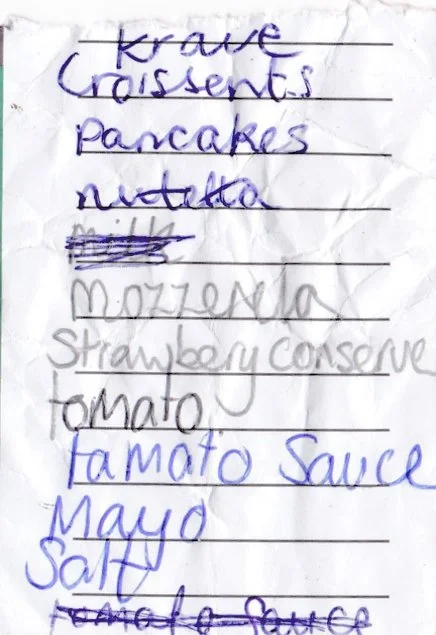 krave
Croissents
pancakes
nutella
milk
mozzerella
Strawbery conserve
tomato
tamato Sauce
Mayo
Salt
tomato sauce